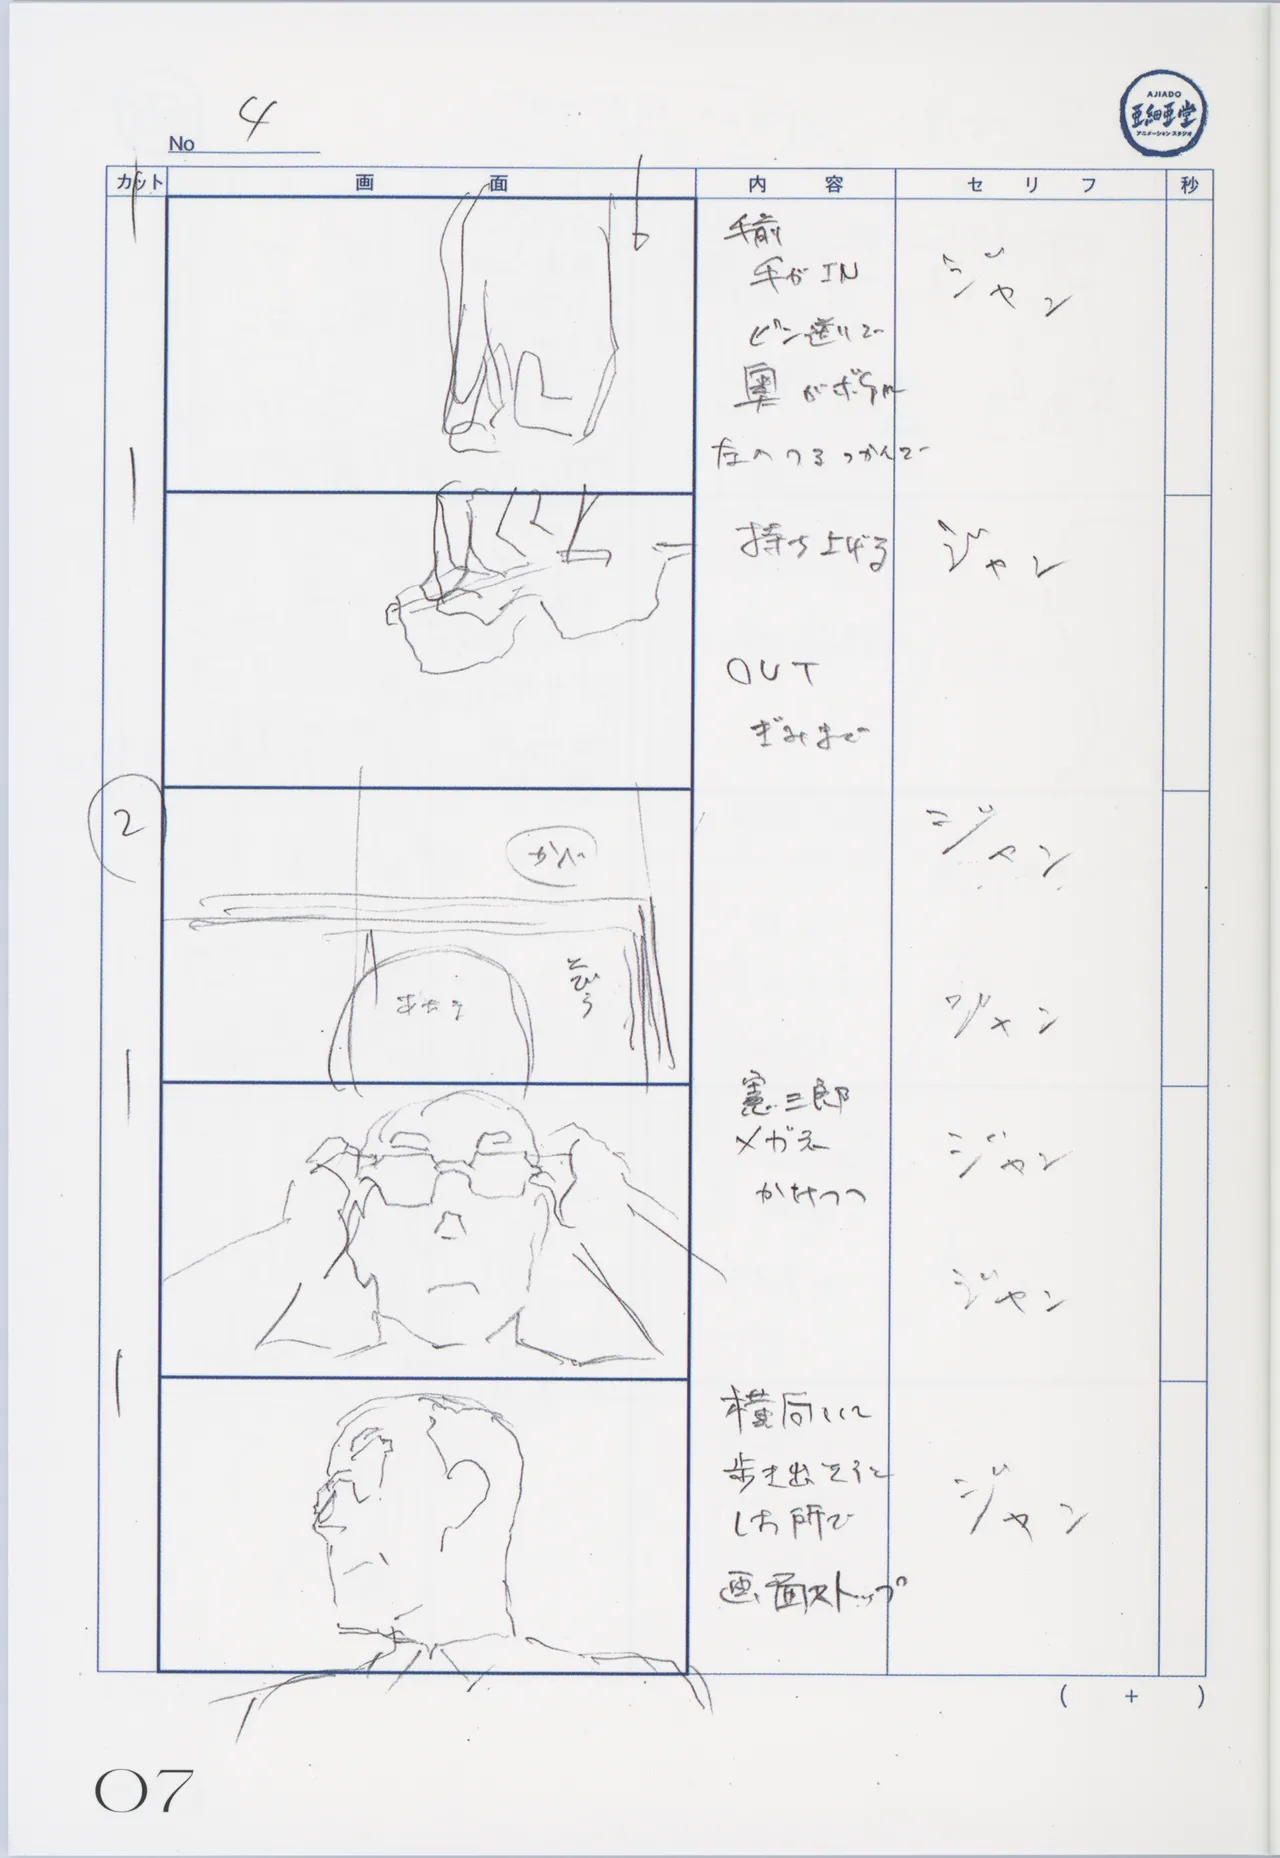 AJIADO
亜細亜堂
アニメーションスタジオ
No 4
カット 画面 内容 セリフ 秒
手前
手がIN
ピン送りで
奥がボケ
左のつるつかんで
ジャン
持ち上げる
OUT
ぎみまで
ジャン
2
かべ
とびら
あたま
ジャン
ジャン
憲三郎
メガネ
かけつつ
ジャン
ジャン
横向いて
歩き出そうと
した所で
画面ストップ
ジャン
( + )
07